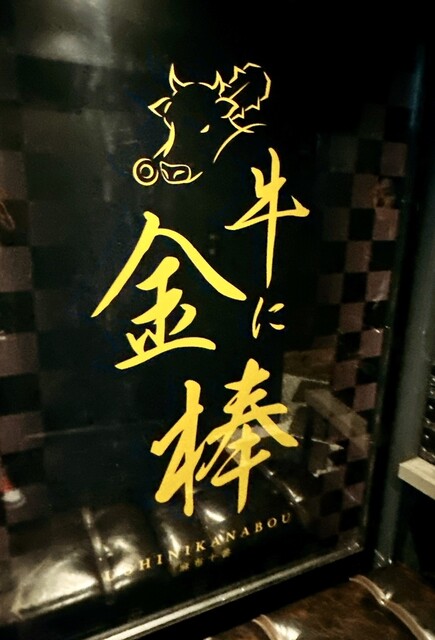 牛に
金棒
USHINIKANABOU